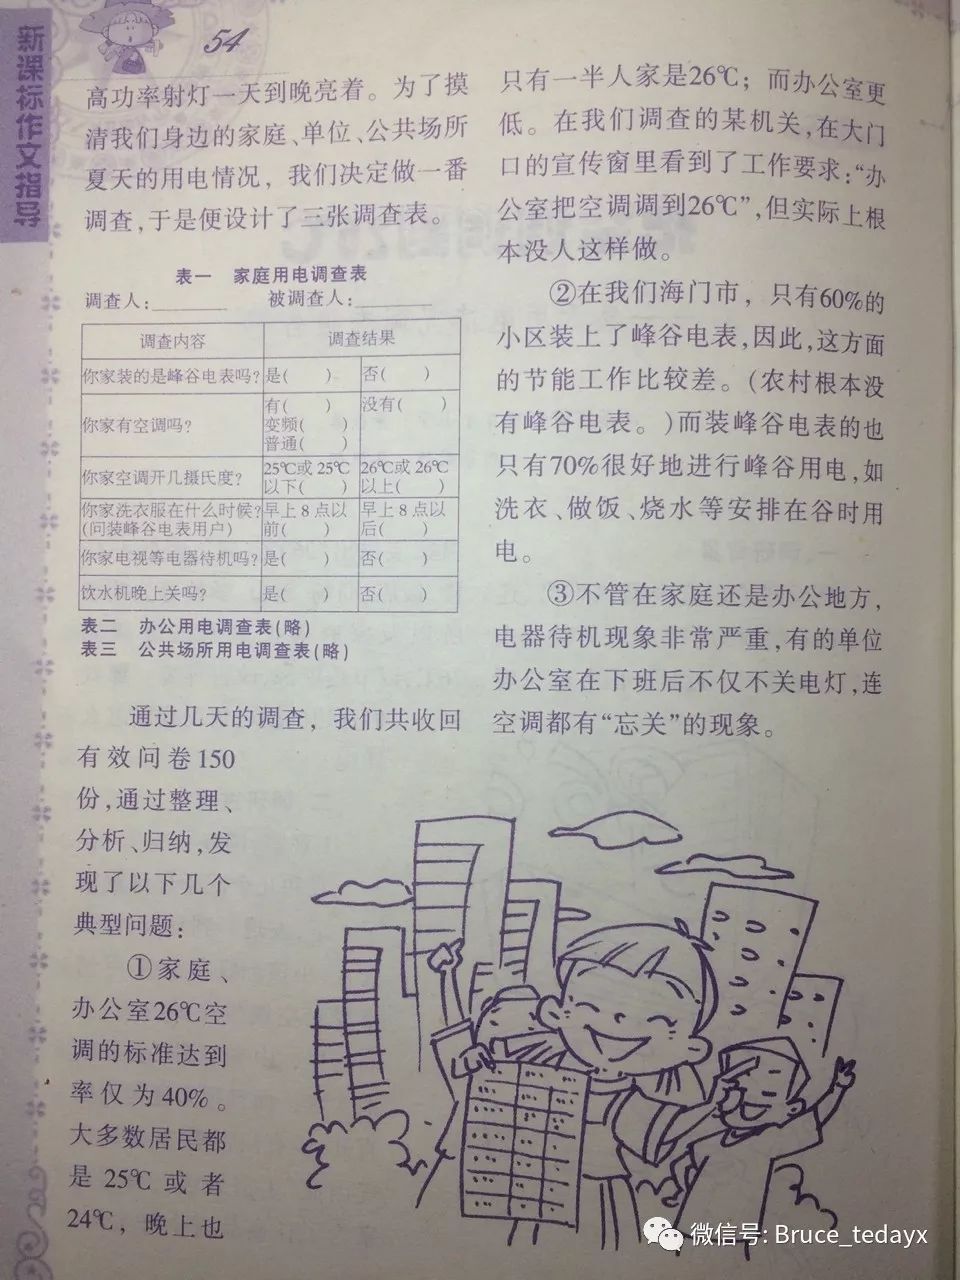 新课标作文指导
54
高功率射灯一天到晚亮着。为了摸
清我们身边的家庭、单位、公共场所
夏天的用电情况，我们决定做一番
调查,于是便设计了三张调查表。
表一 家庭用电调查表
调查人:________ 被调查人:________
调查内容 调查结果
你家装的是峰谷电表吗? 是( ) 否( )
你家有空调吗? 有( ) 变频( ) 普通( ) 没有( )
你家空调开几摄氏度? 25℃或 25℃以下( ) 26℃或 26℃以上( )
你家洗衣服在什么时候?(问装峰谷电表用户) 早上 8 点以前( ) 早上 8 点以后( )
你家电视等电器待机吗? 是( ) 否( )
饮水机晚上关吗? 是( ) 否( )
表二 办公用电调查表(略)
表三 公共场所用电调查表(略)
通过几天的调查，我们共收回
有效问卷150
份,通过整理、
分析、归纳,发
现了以下几个
典型问题:
①家庭、
办公室26℃空
调的标准达到
率仅为40%。
大多数居民都
是 25℃ 或者
24℃，晚上也
只有一半人家是26℃；而办公室更
低。在我们调查的某机关,在大门
口的宣传窗里看到了工作要求:“办
公室把空调调到26℃”,但实际上根
本没人这样做。
②在我们海门市，只有60%的
小区装上了峰谷电表,因此,这方面
的节能工作比较差。(农村根本没
有峰谷电表。)而装峰谷电表的也
只有70%很好地进行峰谷用电,如
洗衣、做饭、烧水等安排在谷时用
电。
③不管在家庭还是办公地方,
电器待机现象非常严重,有的单位
办公室在下班后不仅不关电灯,连
空调都有“忘关”的现象。
微信号: Bruce_tedayx